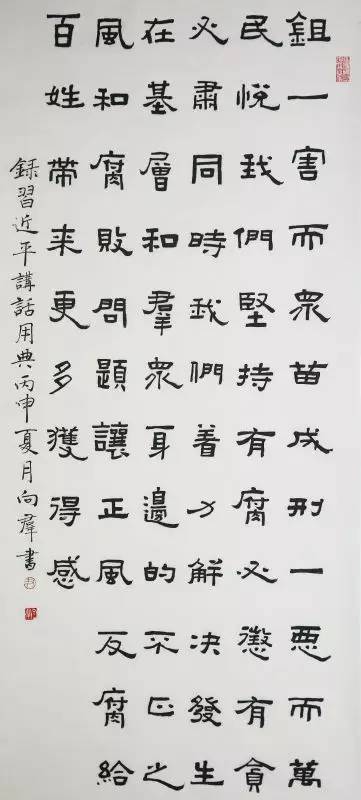 鉏一害而眾苗成刑一惡而萬
民悅我們堅持有腐必懲有貪
必肅同時我們着力解决發生
在基層和羣眾身邊的不正之
風和腐敗問題讓正風反腐給
百姓帶来更多獲得感
録習近平講話用典丙申夏月向羣書